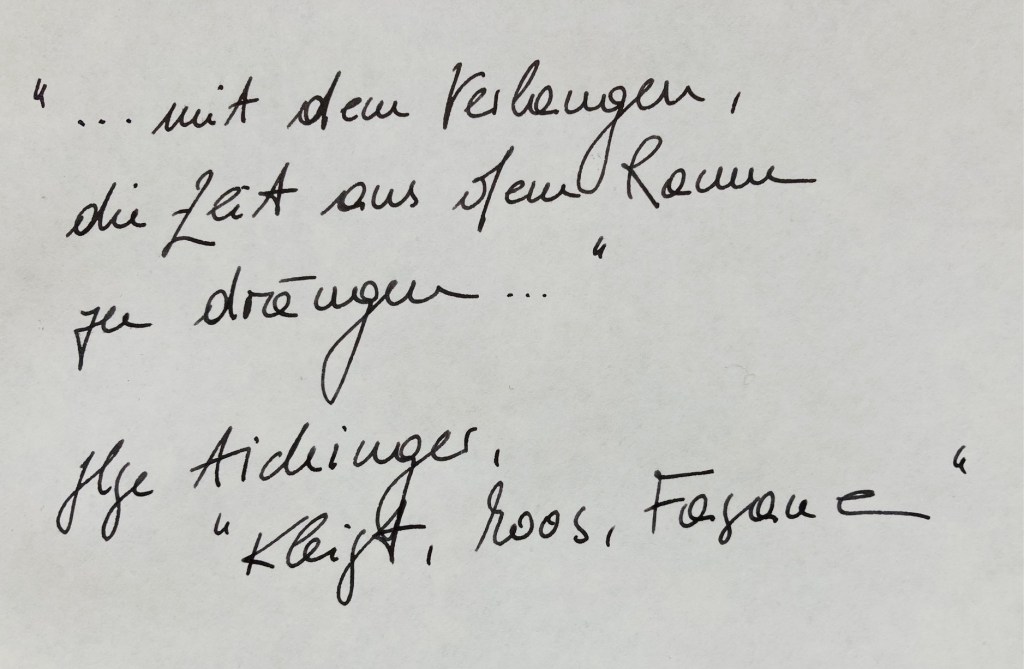 "... mit dem Verlangen,
die Zeit aus dem Raum
zu drängen ..."
Ilse Aichinger,
"Kleist, Moos, Fasane"